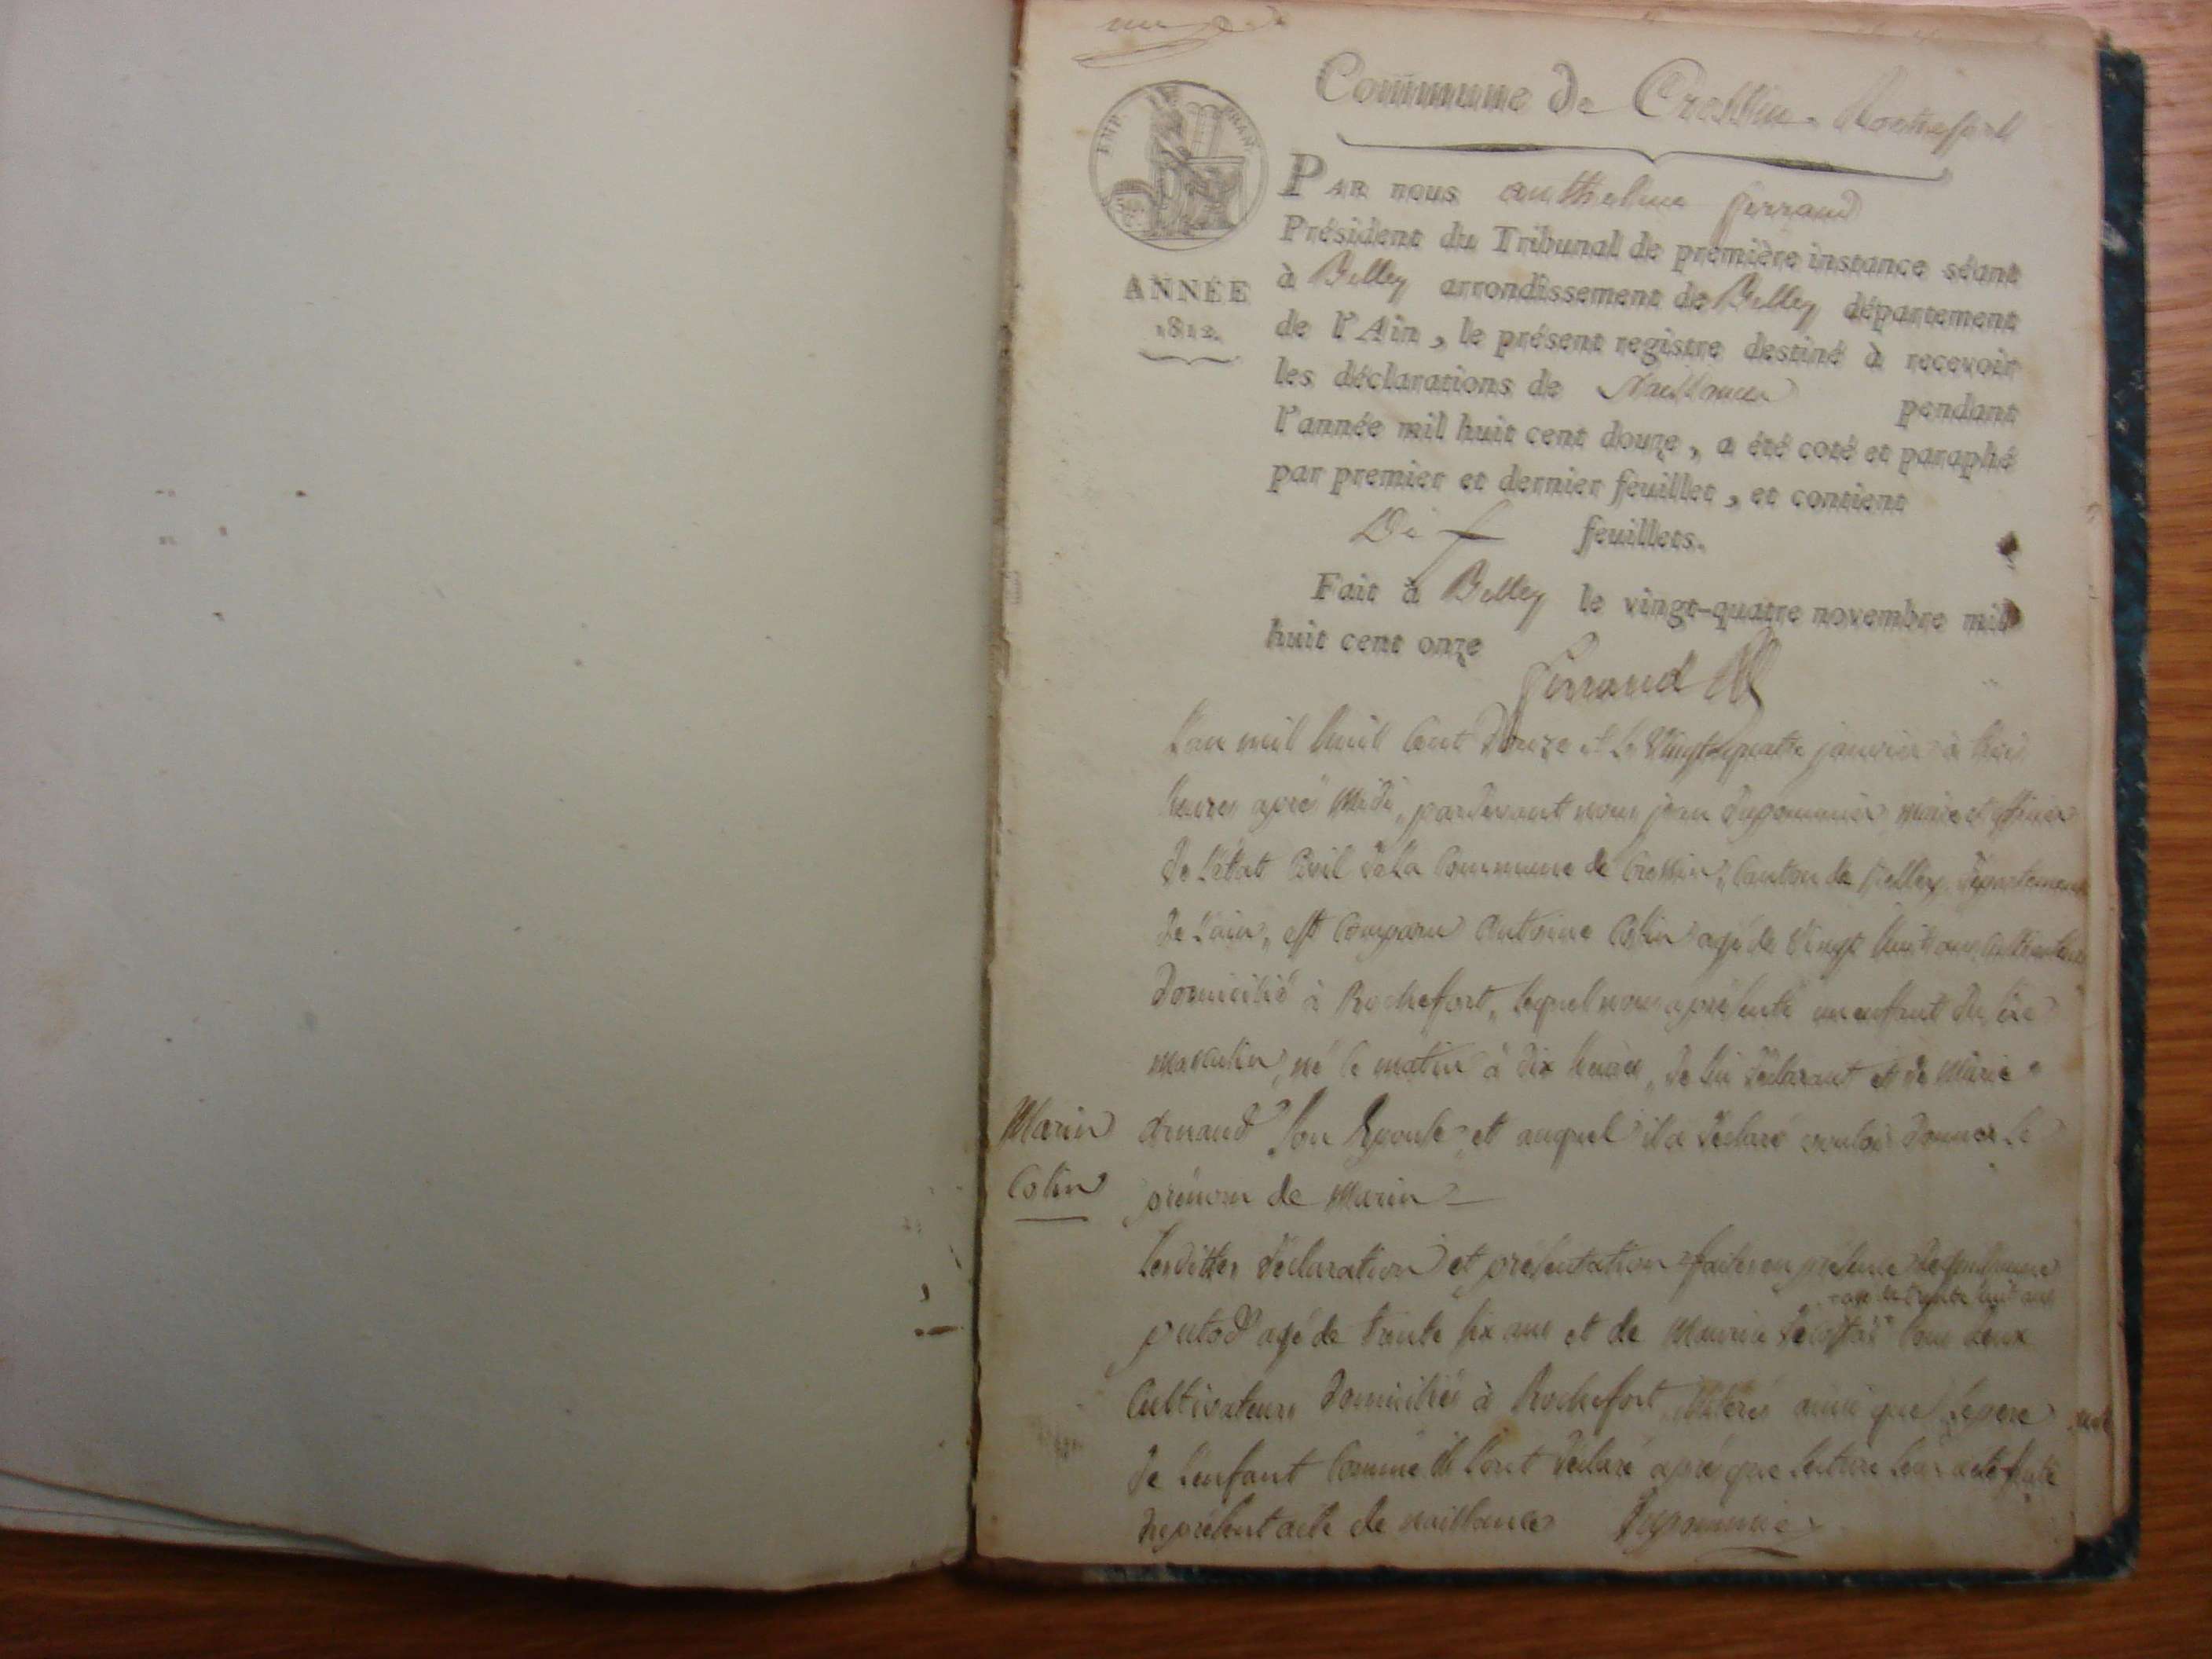 un
Commune de Cressin-Rochefort
EMP. FRAN.
PAR nous anthelme ferrand
Président du Tribunal de première instance séant
à Belley arrondissement de Belley département
ANNÉE
1812.
de l'Ain, le présent registre destiné à recevoir
les déclarations de Naissance pendant
l'année mil huit cent douze, a été coté et paraphé
par premier et dernier feuillet, et contient
Dix feuillets.
Fait à Belley le vingt-quatre novembre mil
huit cent onze
ferrand
L'an mil huit cent Douze et le vingt quatre janvier à trois
heures après midi, pardevant nous jean Dupommier maire et officier
de L'état Civil de La Commune de Cressin, Canton de Belley, département
de L'ain, est Comparu Antoine Colin agé de vingt huit ans Cultivateur
domicilié à Rochefort, lequel nous a présenté un enfant du sexe
masculin, né le matin à dix heures, de lui déclarant et de Marie
Marin
Colin
Arnaud Son Epouse, et auquel il a déclaré vouloir donner le
prénom de Marin
Lesdittes déclaration et présentation faites en présence de
agé de trente huit ans
putod agé de trente six ans et de Marin tous deux
Cultivateurs domiciliés à Rochefort, ainsi que le pere
de L'enfant Comme ils L'ont déclaré après que lecture leur a été faite
du présent acte de naissance Dupommier